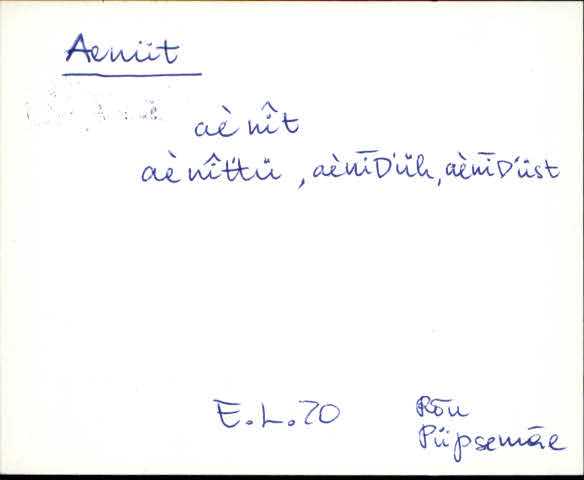 Aeniit
aè nî̀t
aè nî̀t't'ü, aènīD'üh, aènīD'üst
E.L. 70 Rõu
Piipsemäe